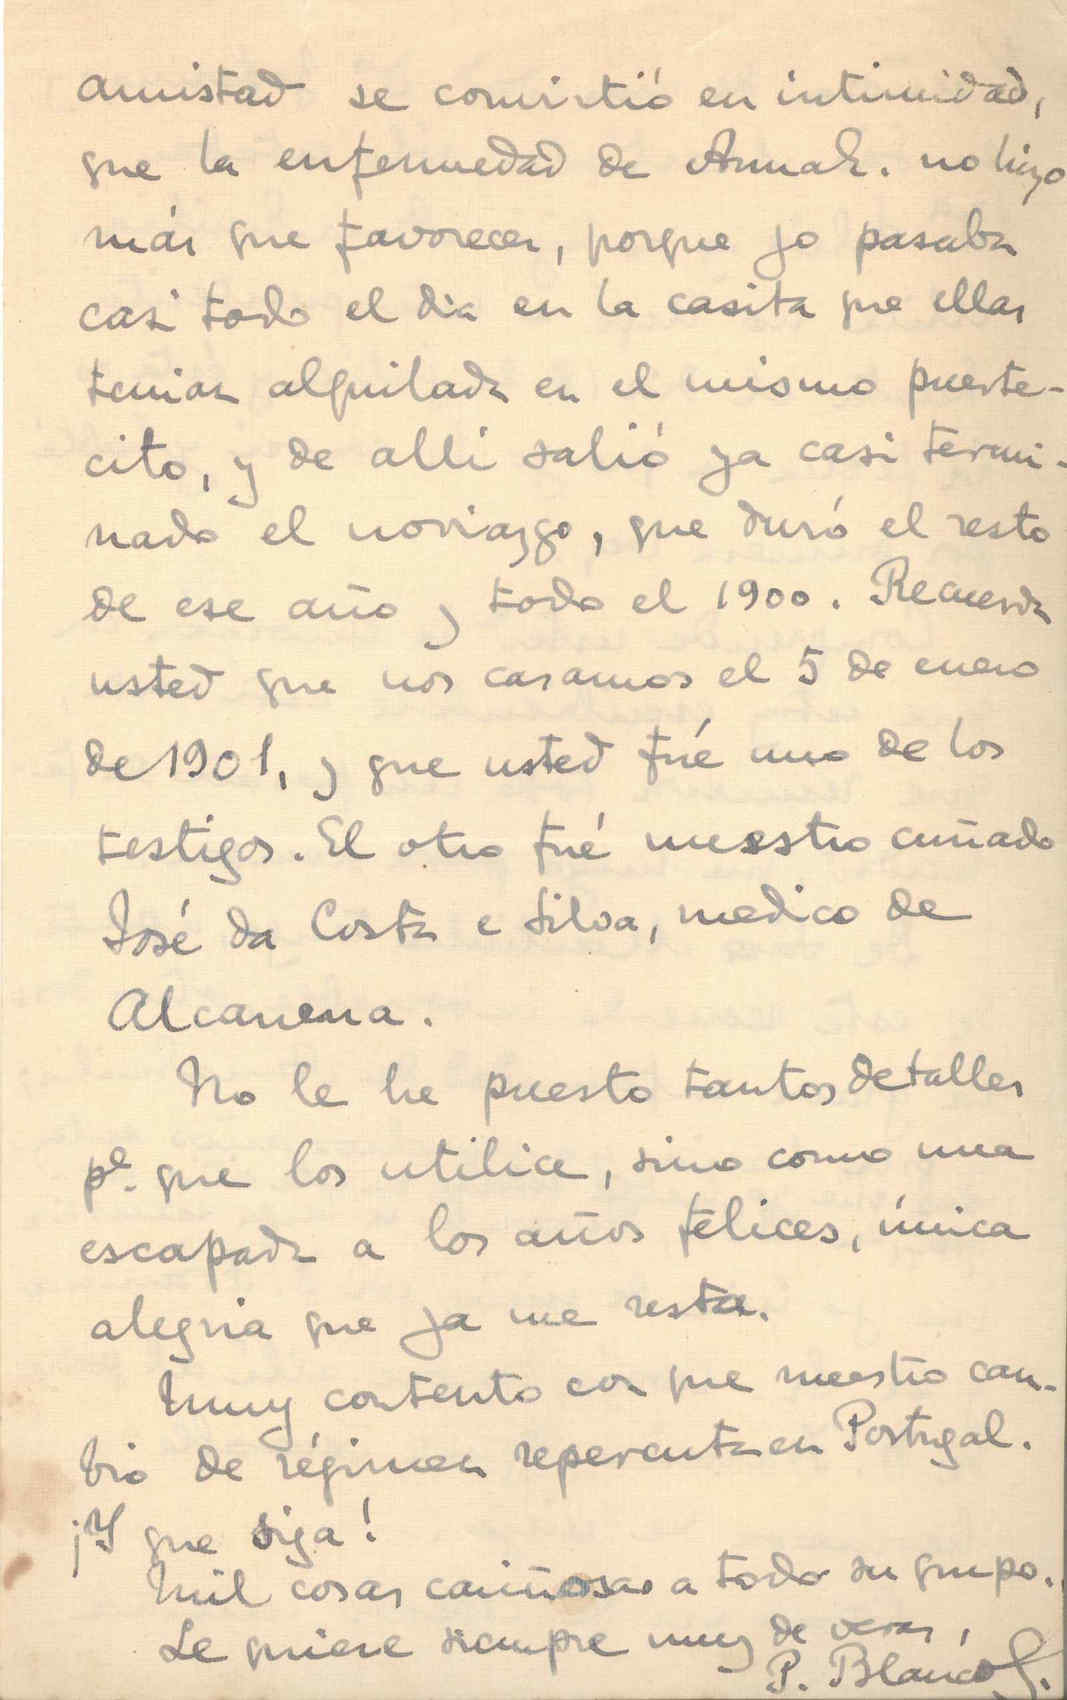 amistad se convirtió en intimidad,
que la enfermedad de no hizo
más que favorecer, porque yo pasaba
casi todo el dia en la casita que ellas
tenian alquilada en el mismo puerte-
cito, y de alli salió ya casi termi-
nado el noviazgo, que duró el resto
de ese año y todo el 1900. Recuerda
usted que nos casamos el 5 de enero
de 1901, y que usted fué uno de los
testigos. El otro fué nuestro cuñado
José da Costa e Silva, medico de
Alcanena.
No le he puesto tantos detalles
pª. que los utilice, sino como una
escapada a los años felices, única
alegria que ya me resta.
Muy contento con que nuestro cam-
bio de régimen repercuta en Portugal.
¡Y que siga!
Mil cosas cariñosas a todo su grupo.
Le quiere siempre muy de veras,
P. Blanco S.